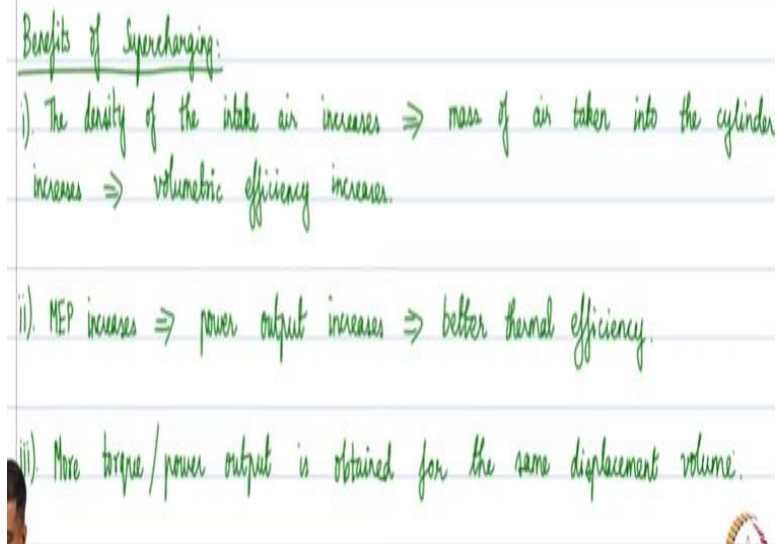 Benefits of Supercharging:
i). The density of the intake air increases ⇒ mass of air taken into the cylinder
increases ⇒ volumetric efficiency increases.
ii). MEP increases ⇒ power output increases ⇒ better thermal efficiency.
iii). More torque/power output is obtained for the same displacement volume.